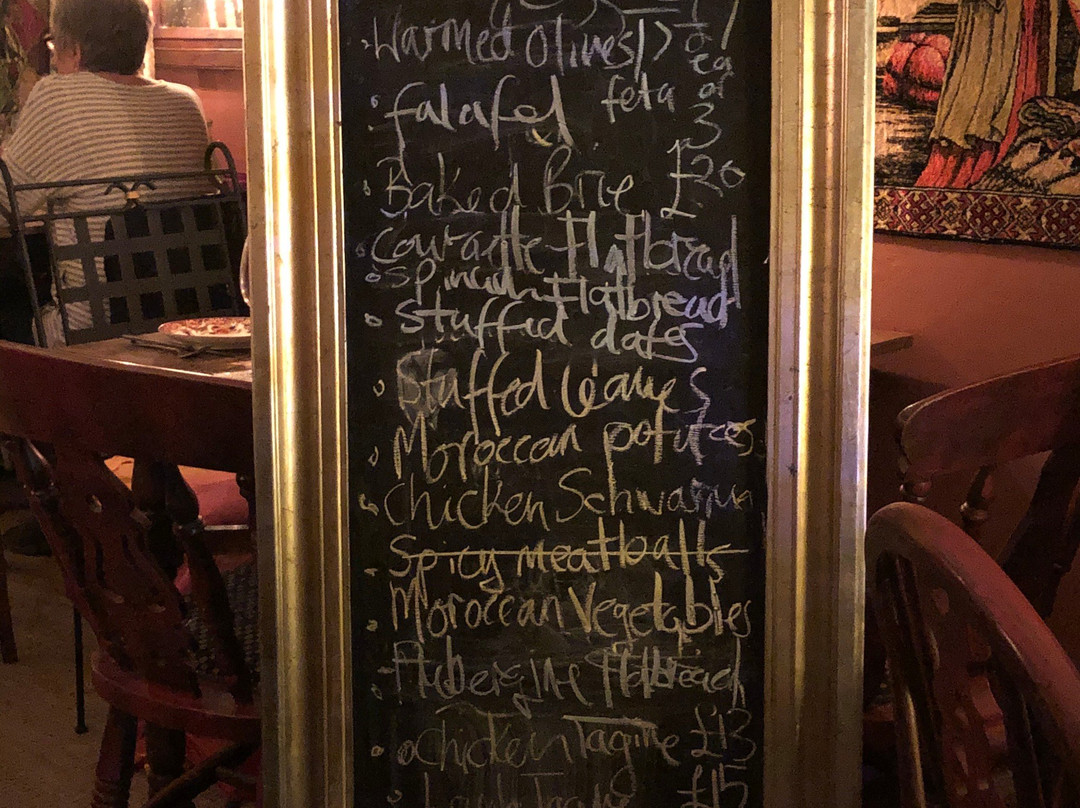 Warmed Olives £7
falafel feta ea
or
3
Baked Brie £20
Courgette Flatbread
Spinach Flatbread
Stuffed dates
Stuffed leaves
Moroccan potatoes
Chicken Schwarma
Spicy meatballs
Moroccan Vegetables
Aubergine Flatbread
Chicken Tagine £13
Lamb Tagine £15